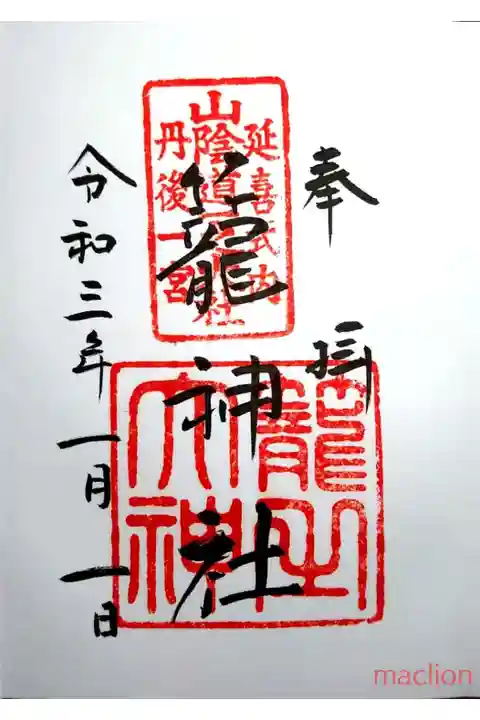 奉拝
延喜式内
山陰道
丹後一宮
籠神社
籠之大神
令和三年一月一日
maclion